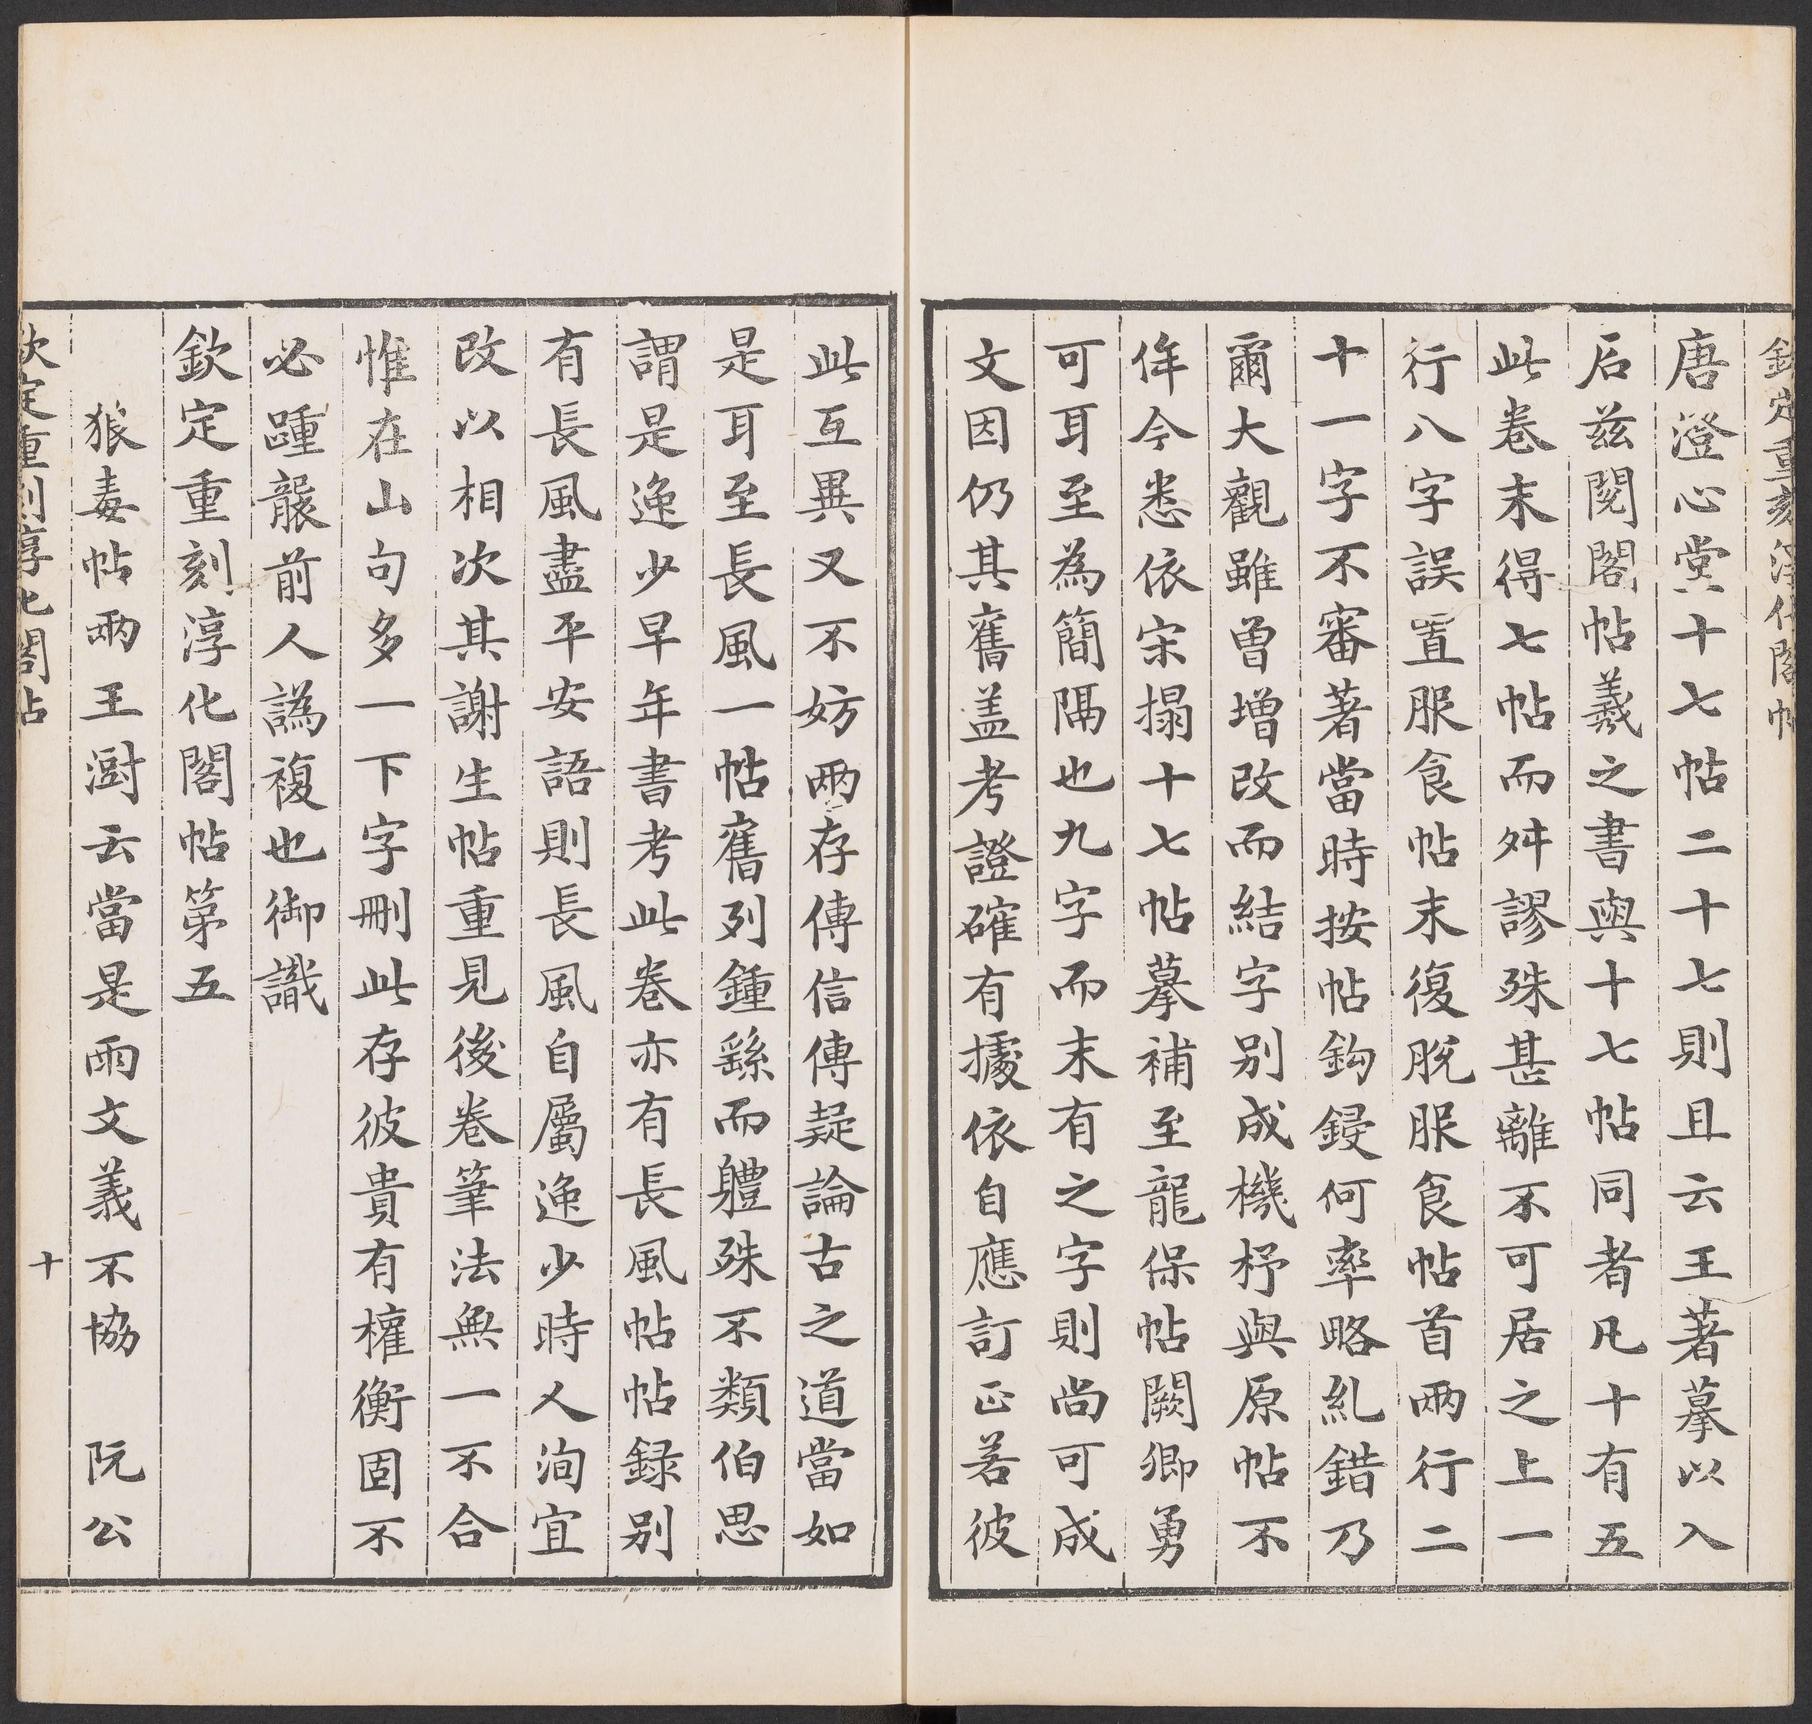 欽定重刻淳化閣帖
唐澄心堂十七帖二十七則且云王著摹以入
石兹閱閣帖羲之書與十七帖同者凡十有五
此卷末得七帖而舛謬殊甚離不可居之上一
行八字誤置服食帖末復脫服食帖首兩行二
十一字不審著當時按帖鈎鋟何率略乿錯乃
爾大觀雖曽增改而結字别成機杼與原帖不
侔今悉依宋搨十七帖摹補至龍保帖闕卿勇
可耳至為簡隔也九字而末有之字則尚可成
文因仍其舊盖考證確有據依自應訂正若彼
此互異又不妨兩存傳信傳疑論古之道當如
是耳至長風一帖舊列鍾繇而體殊不類伯思
謂是逸少早年書考此卷亦有長風帖帖録别
有長風盡平安語則長風自屬逸少時人洵宜
改以相次其謝生帖重見後卷筆法無一不合
惟在山句多一下字刪此存彼貴有權衡固不
必踵襲前人譌複也御識
欽定重刻淳化閣帖第五
狼毒帖兩王澍云當是雨文義不協　阮公
欽定重刻淳化閣帖
十